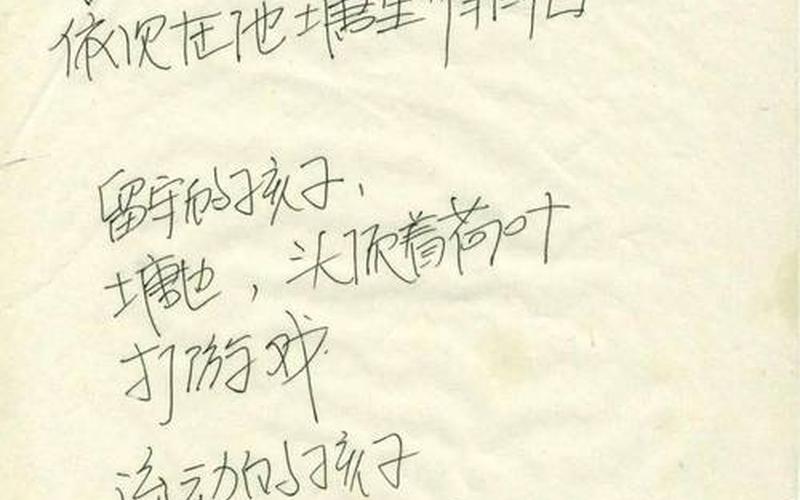 依次在池塘里
留守的孩子,
塘也,头顶着荷叶
打游戏
流动的孩子